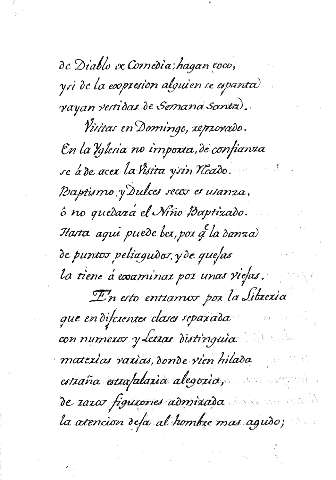 de Diablo de Comedia; hagan coco,
y si de la expresion alguien se espanta
vayan vestidas de Semana Santa.
Visitas en Domingo, reprovado.
En la Yglesia no importa, de confianza
se á de acer la Visita y sin Tocado.
Baptismo, y Dulces secos es usanza,
ò no quedará el Niño Baptizado.
Hasta aqui puede ber, por q.e la danza
de puntos peliagudos, y de quejas
la tiene á examinar por unas viejas.
En esto entramos por la Libreria
que en diferentes clases separada
con numeros y Letras distinguia
materias varias, donde vien hilada
estraña estrafalaria alegoria,
de raros figurones admirada
la atencion deja al hombre mas agudo;